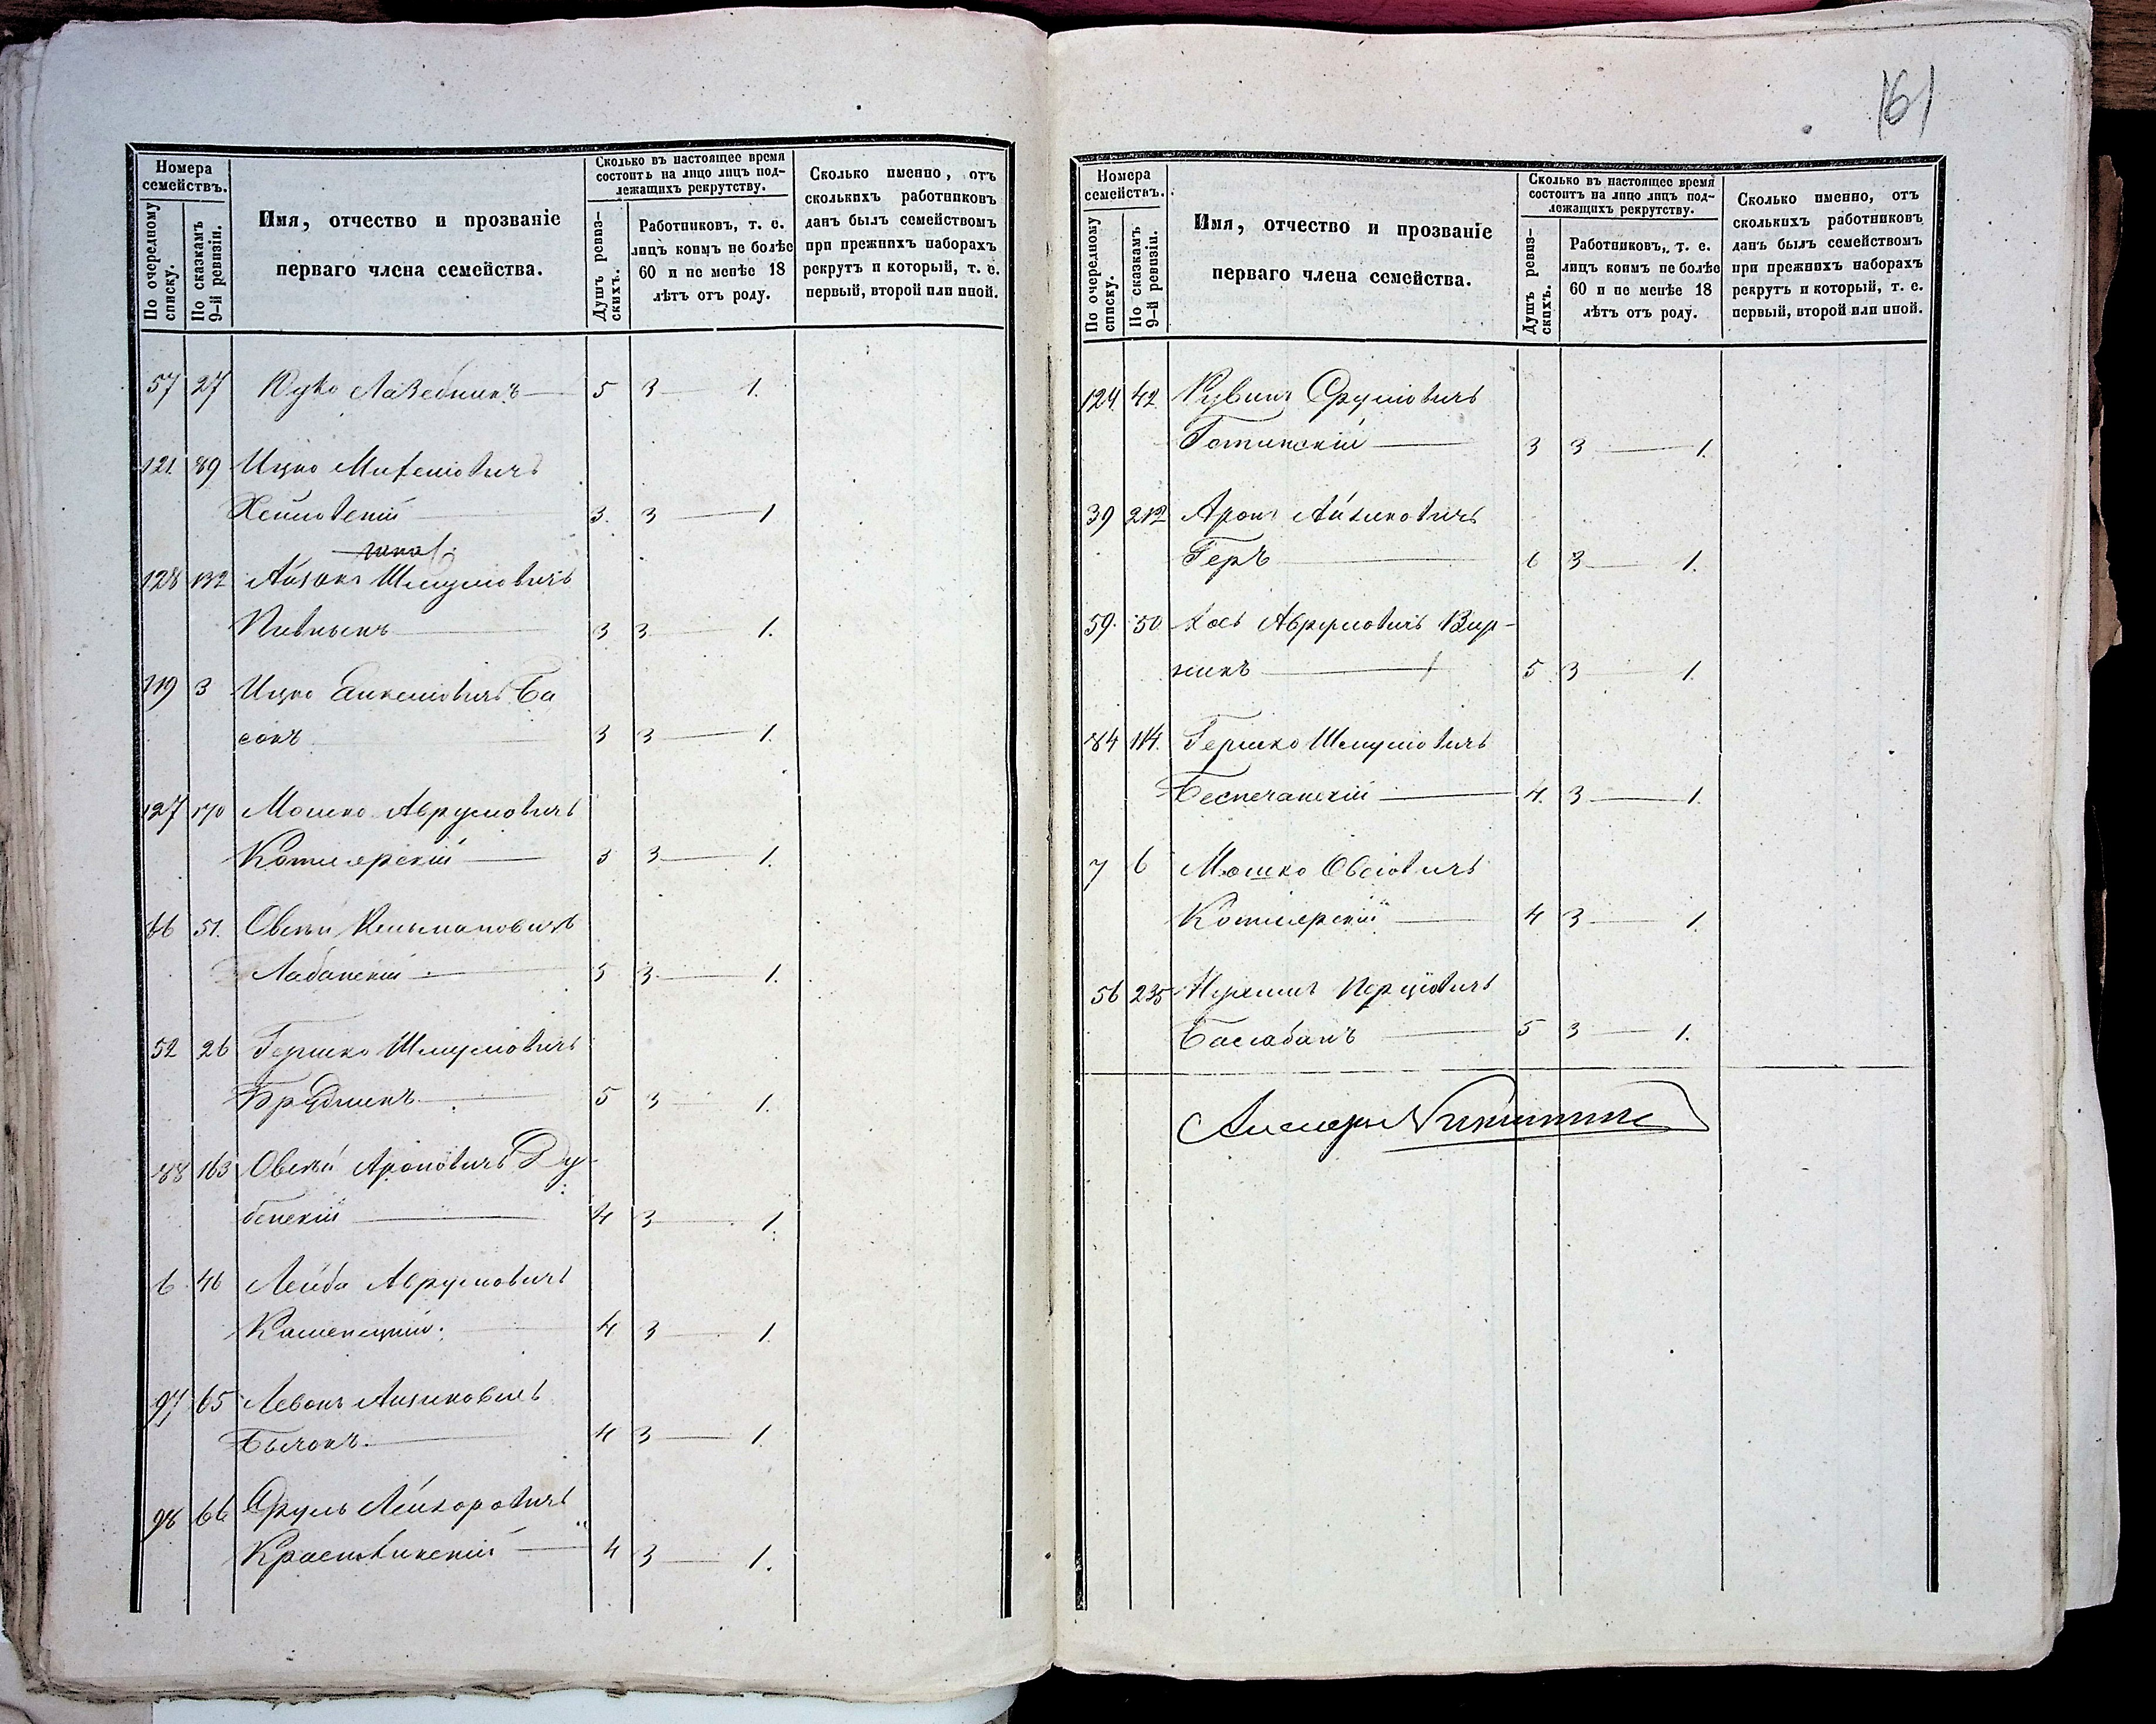 Номера семействъ.
По очередному списку.
По сказкамъ 9-й ревизіи.
Имя, отчество и прозваніе перваго члена семейства.
Сколько въ настоящее время состоитъ на лицо лицъ подлежащихъ рекрутству.
Душъ ревизскихъ.
Работниковъ, т. е. лицъ коимъ не болѣе 60 и не менѣе 18 лѣтъ отъ роду.
Сколько именно, отъ сколькихъ работниковъ данъ былъ семействомъ при прежнихъ наборахъ рекрутъ и который, т. е. первый, второй или иной.
57 27 Юдко Лазебникъ 5 3 — 1.
121. 89 Ицко
3. 3 — 1
128 132 Айзикъ Шмулловичъ
Пивныкъ 3 3 — 1.
119 3 Ицко Анкелиовичъ Ба
сокъ 3 3 — 1.
127 170 Мошко Аврумовичъ
Котлярскій 3 3 — 1.
86 51. Овсѣй Кельмановичъ
Лабанскій 5 3 — 1.
52 26 Гершко Шмулиовичъ
Брудникъ 5 3 — 1.
88 163 Овсѣй Ароновичъ Ду-
бенскій 4 3 — 1.
6 46 Лейба Аврумовичъ
Каменецкій 4 3 — 1.
97 65 Айзиковичъ
Бычокъ 4 3 — 1.
98 66 Сруль Лейзоровичъ
4 3 — 1.
161
Номера семействъ.
По очередному списку.
По сказкамъ 9-й ревизіи.
Имя, отчество и прозваніе перваго члена семейства.
Сколько въ настоящее время состоитъ на лицо лицъ подлежащихъ рекрутству.
Душъ ревизскихъ.
Работниковъ, т. е. лицъ коимъ не болѣе 60 и не менѣе 18 лѣтъ отъ роду.
Сколько именно, отъ сколькихъ работниковъ данъ былъ семействомъ при прежнихъ наборахъ рекрутъ и который, т. е. первый, второй или иной.
124 42 Рувинъ Срулиовичъ
3 3 — 1.
39 212 Аронъ Айзиковичъ
Геръ 6 3 — 1.
59. 50 Хаസь Аврумовичъ Вир-
никъ 5 3 — 1.
84 114. Гершко Шмулиовичъ
Беспечанскій 4. 3 — 1.
7 6 Мошко Овсіовичъ
Котлярскій 4 3 — 1.
56 235 Нухимъ Перціовичъ
Баслабанъ 5 3 — 1.